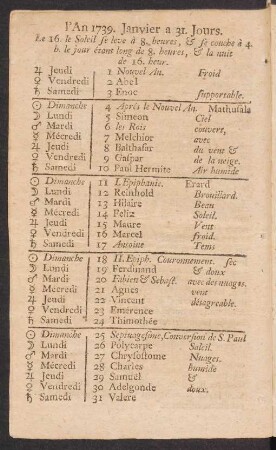 l'An 1739. Janvier a 31. Jours.
Le 16. le Soleil se leve à 8. heures, & se couche à 4.
h. le jour étant long de 8. heures, & la nuit
de 16. heur.
♃ Jeudi 1 Nouvel An. Froid
♀ Vendredi 2 Abel
♄ Samedi 3 Enoc supportable.
☉ Dimanche 4 Après le Nouvel An. Mathusala
☽ Lundi 5 Simeon Ciel
♂ Mardi 6 les Rois couvert,
☿ Mécredi 7 Melchior avec
♃ Jeudi 8 Balthasar du vent &
♀ Vendredi 9 Gaspar de la neige.
♄ Samedi 10 Paul Hermite Air humide
☉ Dimanche 11 I. Epiphanie. Erard
☽ Lundi 12 Reinhold Brouillard.
♂ Mardi 13 Hilaire Beau
☿ Mécredi 14 Felix Soleil.
♃ Jeudi 15 Maure Vent
♀ Vendredi 16 Marcel froid.
♄ Samedi 17 Antoine Tems
☉ Dimanche 18 II. Epiph. Couronnement. sec
☽ Lundi 19 Ferdinand & doux
♂ Mardi 20 Fabien & Sebast. avec des nuages.
☿ Mecredi 21 Agnes vent
♃ Jeudi 22 Vincent désagreable.
♀ Vendredi 23 Emerence
♄ Samedi 24 Thimothée
☉ Dimanche 25 Septuagesime, Conversion de S. Paul
☽ Lundi 26 Polycarpe Soleil.
♂ Mardi 27 Chrysostome Nuages.
☿ Mécredi 28 Charles humide
♃ Jeudi 29 Samuel &
♀ Vendredi 30 Adelgonde doux.
♄ Samedi 31 Valere